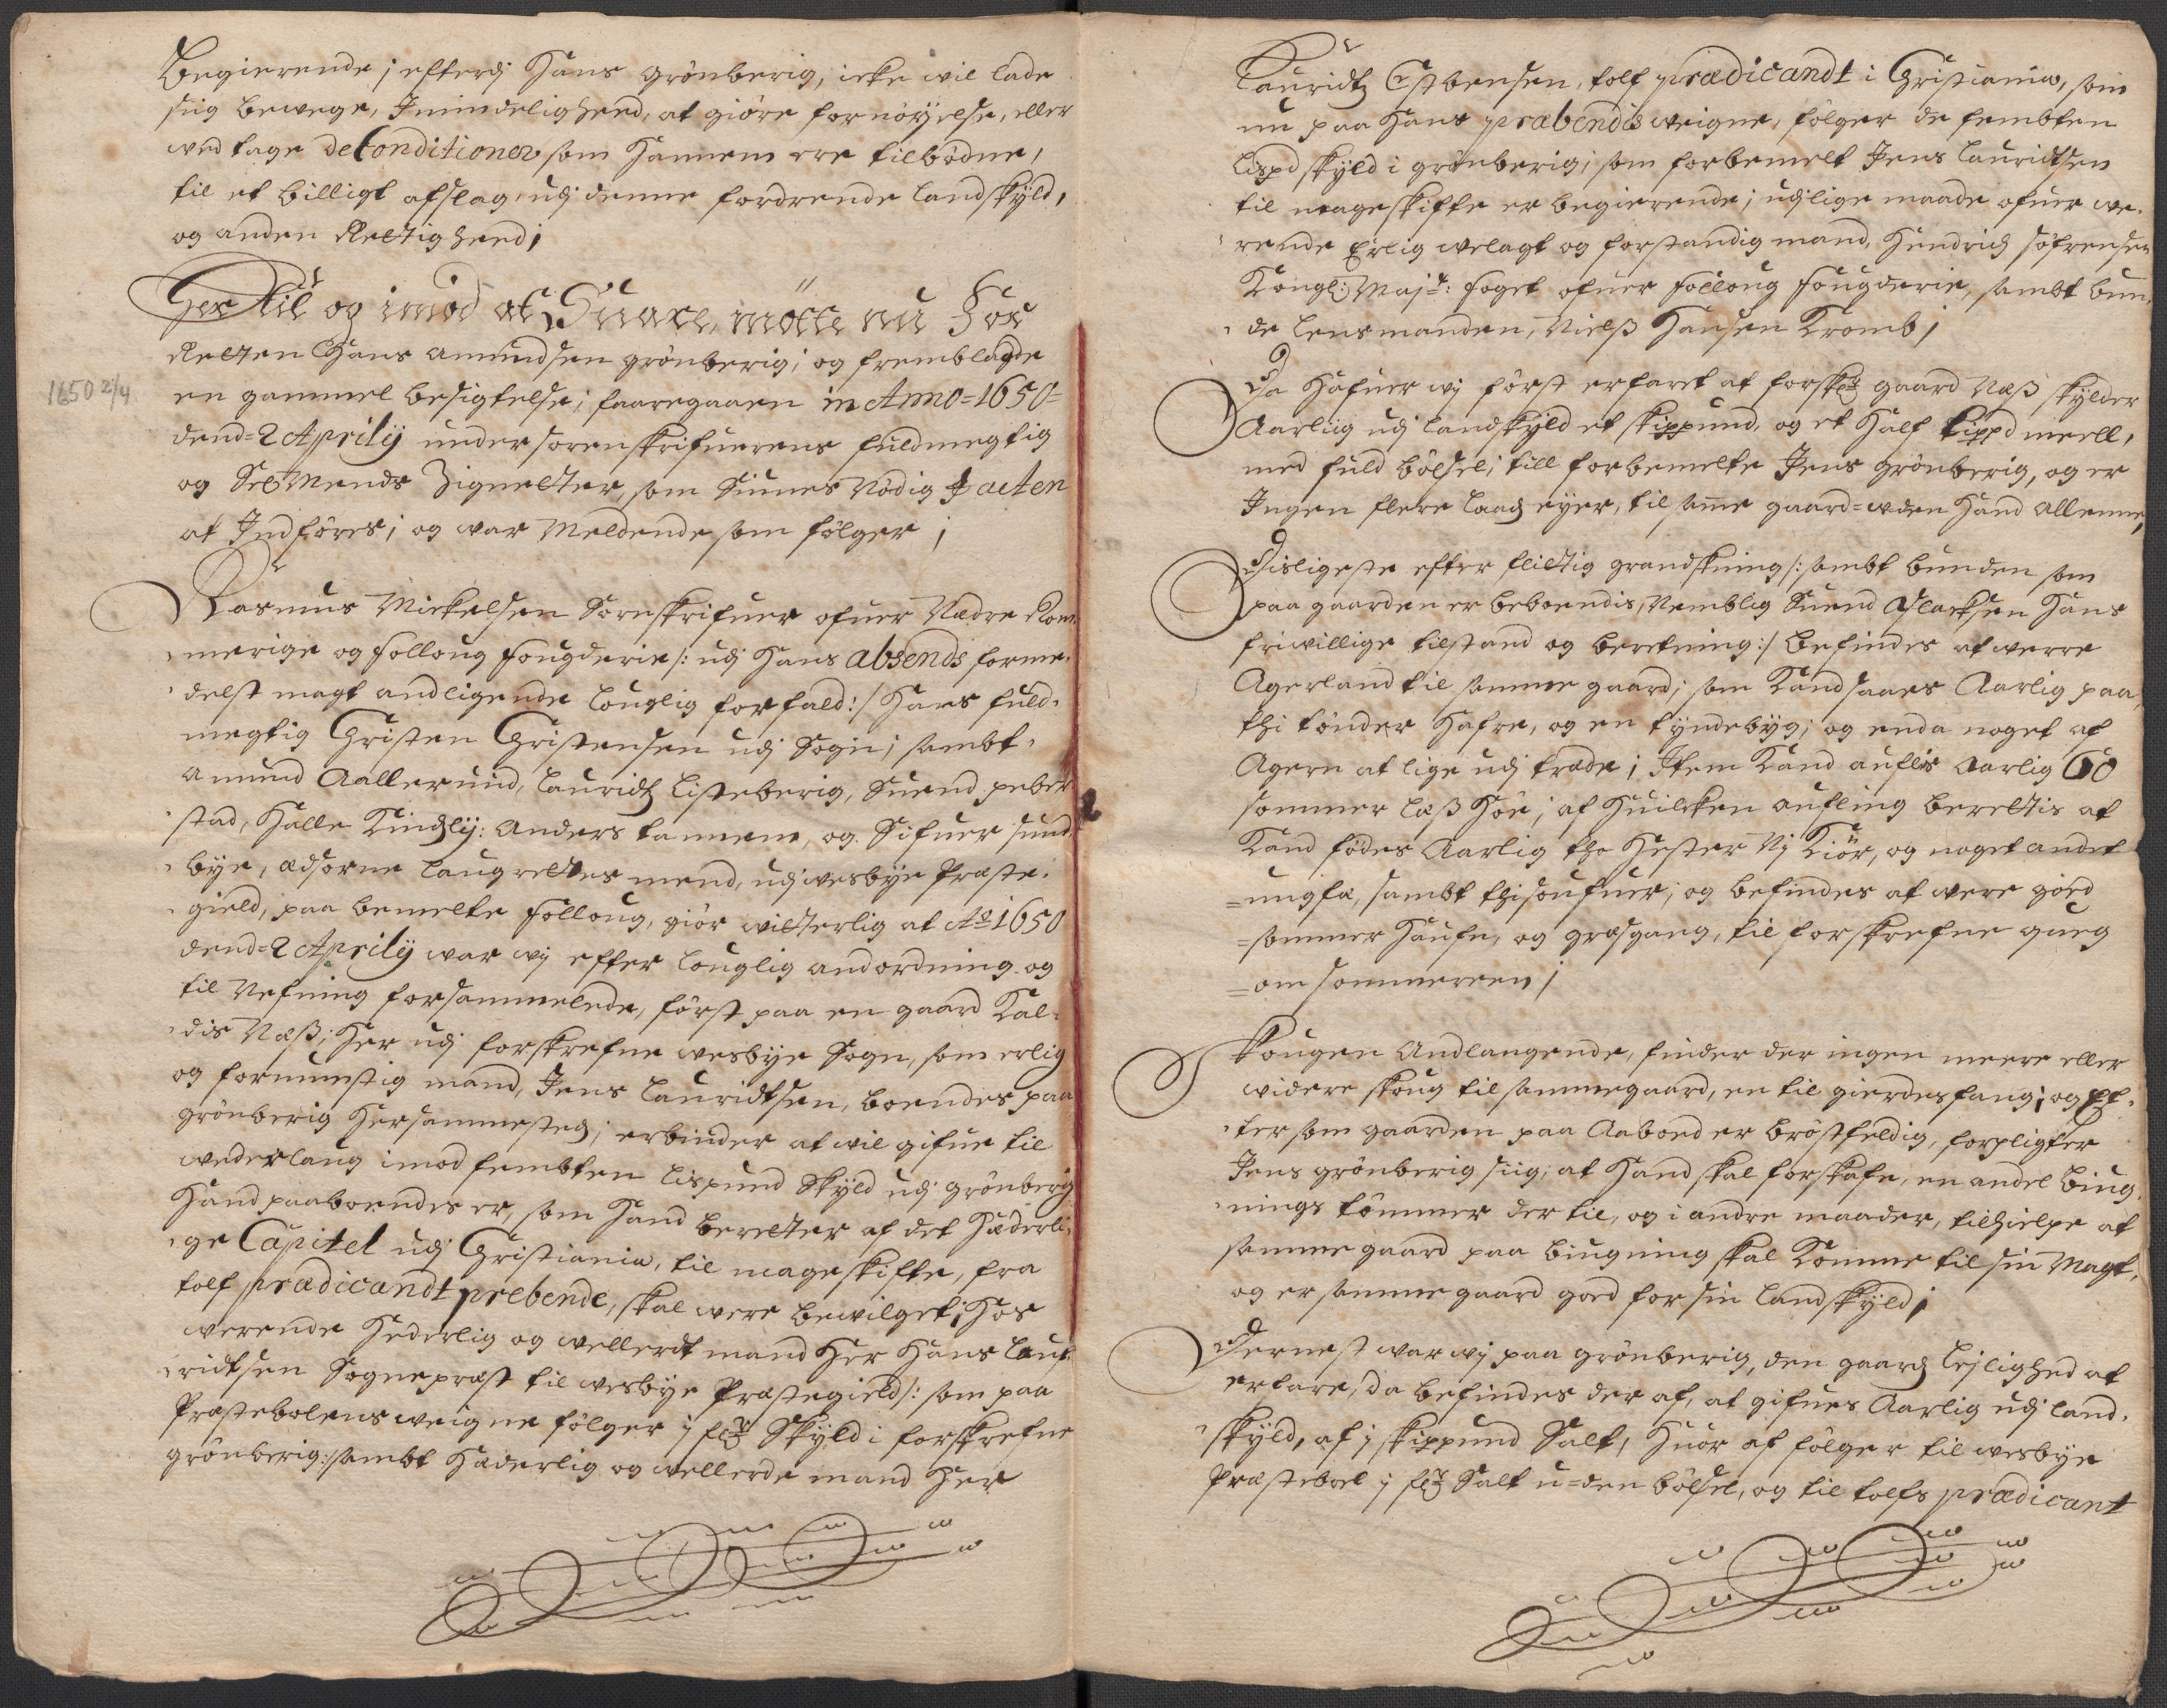 Begierende; efterdj Hans grønberig, icke wil lade
siig bewege, I mindelighed, at giøre fornøyelse, eller
wed tage de Conditioner som Hannem ere tilbødne,
til et billigt afslag, udj denne fordrende landskyld,
og anden Rettighed;
Her til og imod at Suare, mötte nu for
Retten Hans Amundsen grønberig; og fremblagde
en gammel besigtelse; faaregaaen in Anno=1650=
dend=2 Aprilij under sorenskrifuerens fuldmegtig
og Sex Mends Zignetter, som Siunes Nödig I acten
at Indføres; og war Meldende som følger;
1650 2/4
Rasmus Mickelsen Sornskrifuer ofuer Nedre Rom,
merige og folloug fougderie /: udj Hans absends forme,
delst magt andligende louglig forfald :/ Hans fuld,
megtig Christen Christensen udj Sogn; sambt,
Amund Aallerund, Lauridtz Listeberig, Suend peber
stad, Halle Kindzly: Anders tannem, og Sifuer Sund
bye, edsorne laugrettes mend, udj wesbye Præste,
gield, paa bemelte folloug, giør witterlig at Ao 1650
dend=2 Aprily war wij efter louglig andordning og
til Nefning forsammelede, först paa en gaard Kal,
dis Næß; Her udj forskrefne wesbye Sogn, som erlig
og fornumstig mand, Jens Lauridtsen, boendes paa
grønberig Hersammesteds; erbinder at wil gifue til
wederlaug imod fembten lispund Skyld udj grønberig
Hand paaboendes er, som Hand beretter af det Hæderli,
ge Capitel udj Christiania, til mageskifte, fra
tolf prædicandt prebende, skal were bewilget; Hos
werende Hederlig og wellerdt mand Her Hans Lau,
ridtsen Sogneprest til wesbye Præstegield /: som paa
Præstebolens weigne følger j fl Skyld i forskrefne
grønberig :/ sambt Hæderlig og wellerde mand Her
Lauridtz Estbensen, tolf prædicandt i Christiania, som
nu paa Hans præbendis weigne, følger de fembten
lispd skyld i grønberig; som forbemelt Jens Lauridtsen
til mageskifte er begierende; udj lige maade ofuer we,
rende Erlig welagt og forstandig mand, Hendrich söfrensen
Kongl: Majt: foget ofuer folloug fougderie, sambt bun,
de lensmanden, Nielß Hansen Kromb;
Da Hafuer wij først erfaret at forskr gaard Næß skylder
Aarliig udj landskyld et skippund, og et Half lippd meell,
med fuld böxsel; till forbemelte Jens grønberig, og er
Ingen flere laads eyer, til same gaard=uden Hand allenne,
Disligeste efter flittig grandskning /: sambt bunden som
paa gaarden er beboendis, Nemblig Suend Aslacksen Hans
friwillige tilstand og beretning :/ befindes at werre
Agerland til samme gaard; som Kand saaes Aarlig paa,
thi tönder Hafre, og en tyndebyg; og enda noget af
Agern at lige udj træde; Item Kand aufles Aarlig 60
sommer læß Höe; af Huilcken aufling berettis at
Kand födes Aarlig tho Hester Nj Kiör, og noget andet
=ungfæ, sambt thi soufuer; og befindes at were goed
=sommer Haufn, og græsgang, til forskrefne queg
=om sommereen;
Skougen Andlangende, finder der ingen meere eller
widere skoug til samme gaard, en til gierdesfang; og Ef,
tersom gaarden paa Aaboed er bröstfeldig, forpligter
Jens grønberig siig, at Hand skal forskafe, en andel biug,
nings tömmer der til, og i andre maader, tilhielpe at
samme gaard paa biugning skal Komme til sin Magt,
og er samme gaard goed for sin landskyld;
Dernest war wij paa grønberig, den gaards lejlighed at
erfare, da befindes der af, at gifues Aarlig udj land,
skyld, af j skippund Salt, Huor af følger til wesbye
Præsteboel j fl Salt u=den böxsel, og til tolfs prædicant